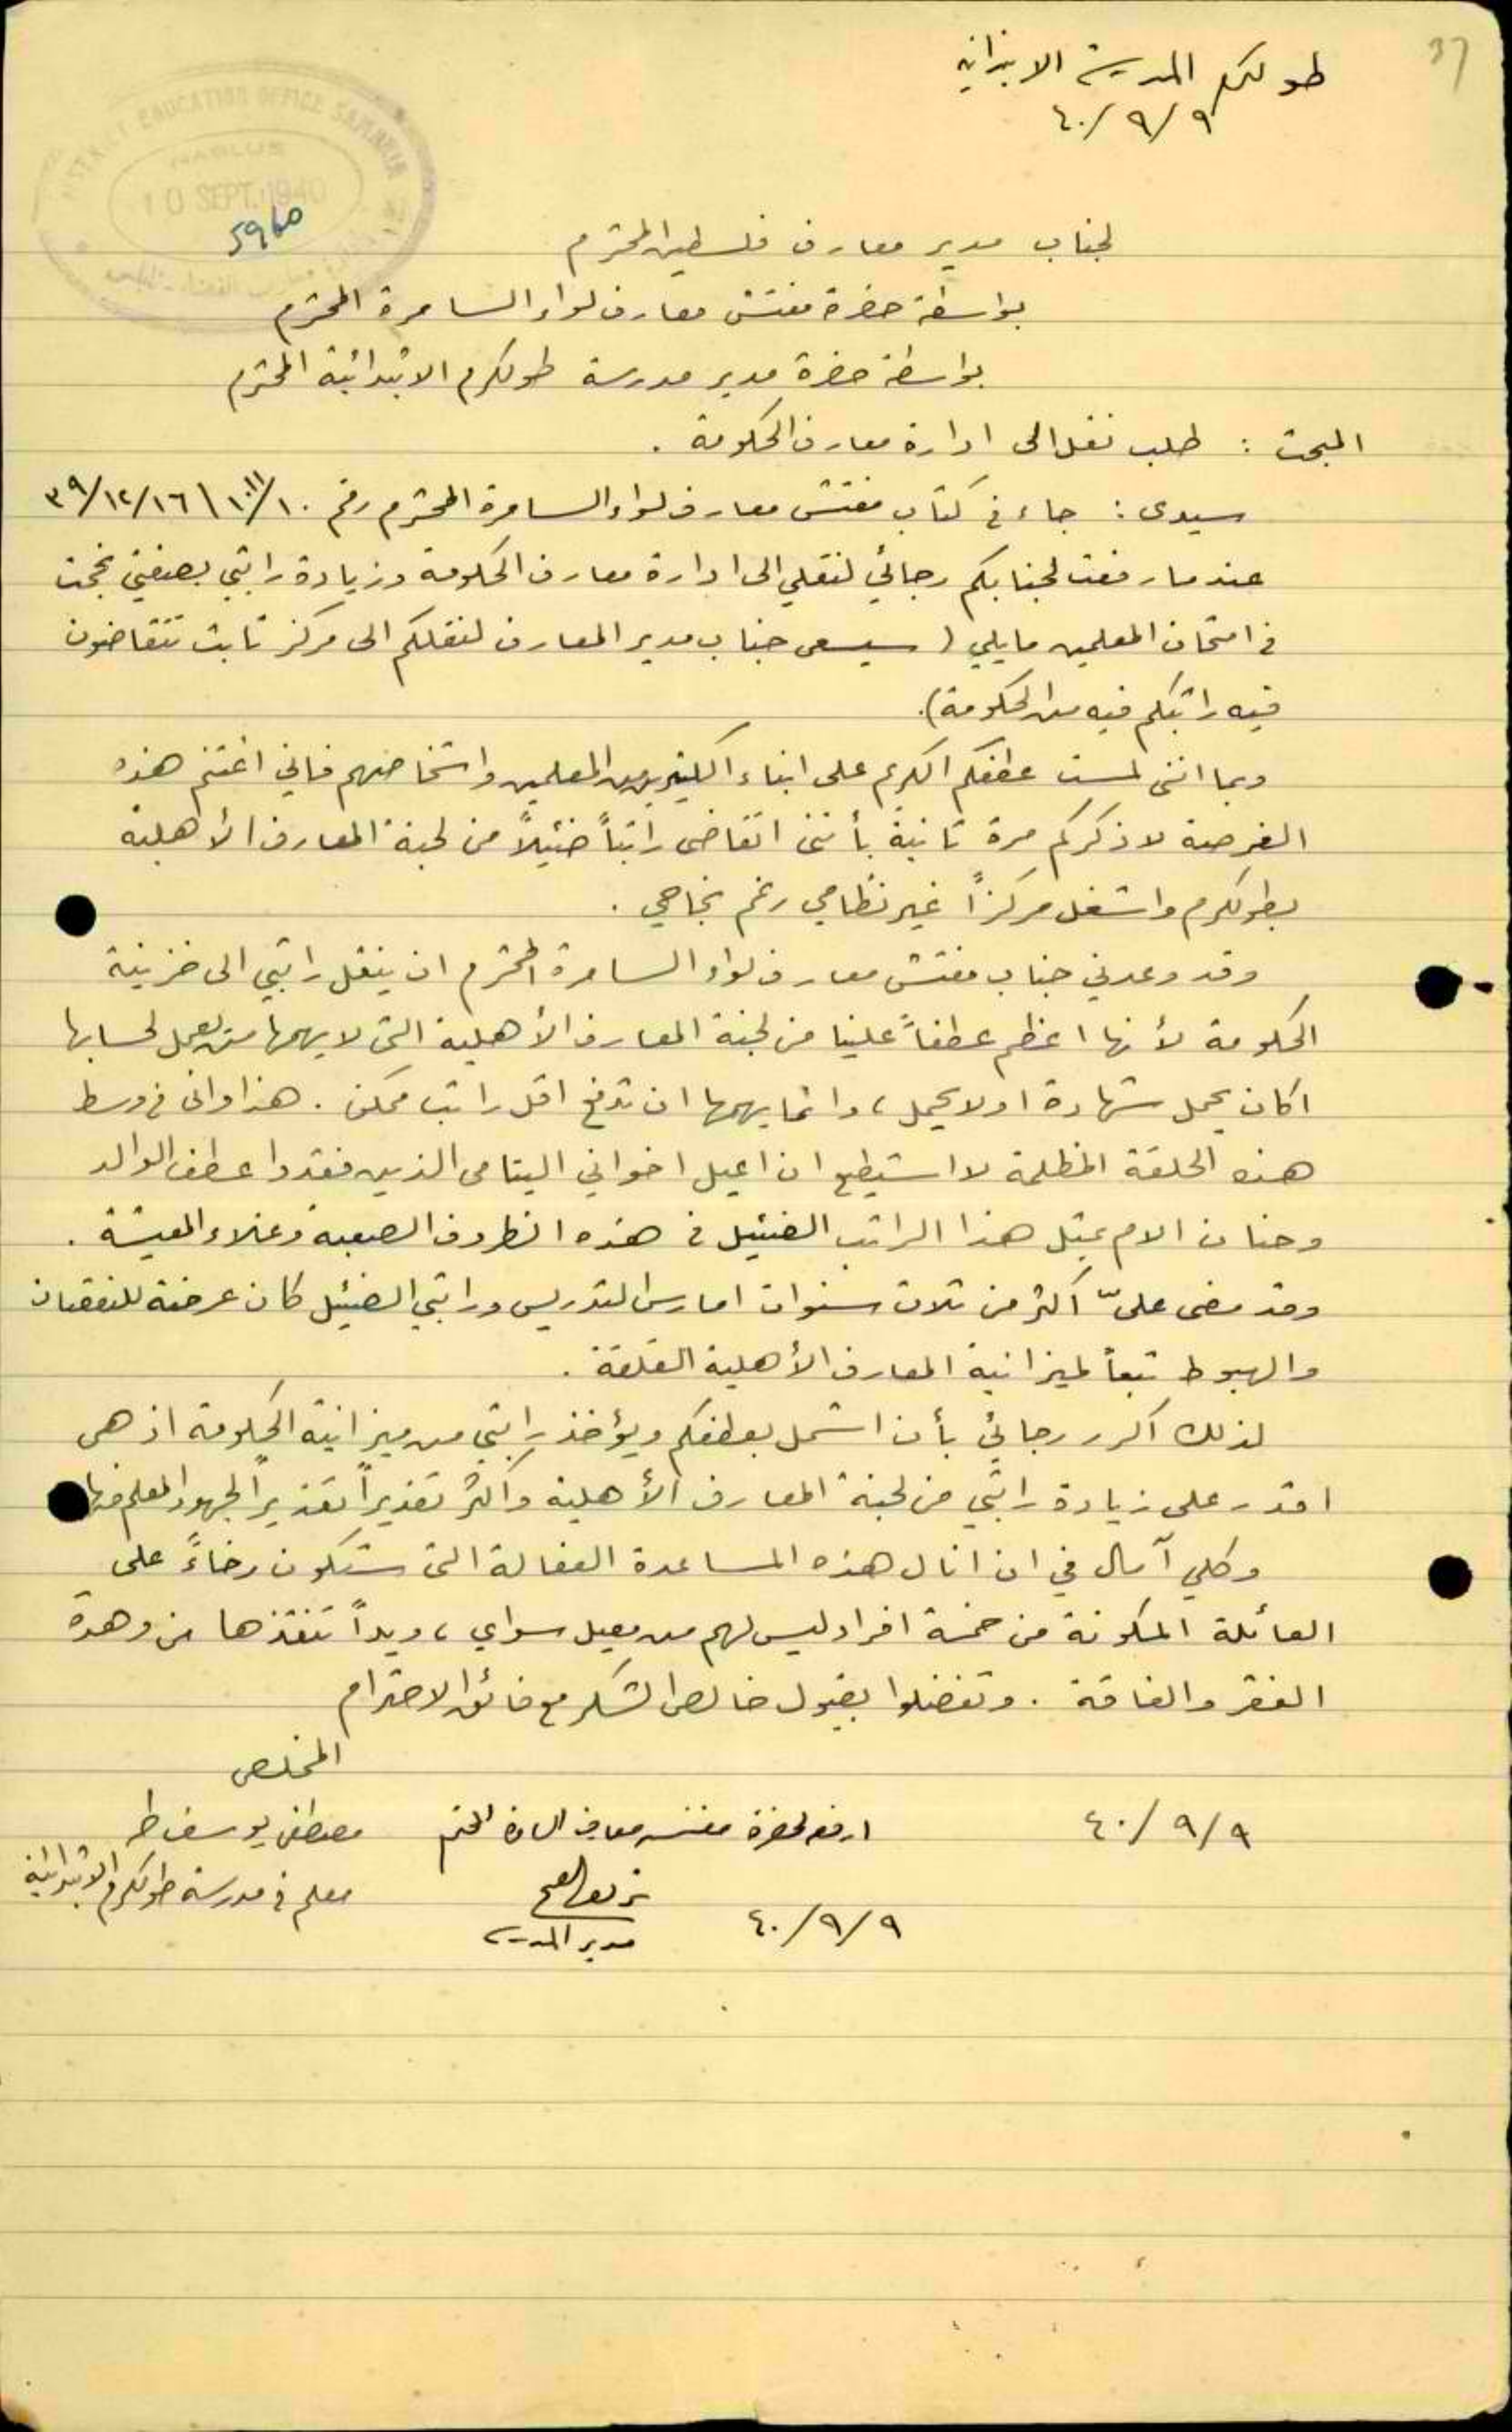 37
طولكرم المدرسة الابتدائية
٤٠/٩/٩
DISTRICT EDUCATION OFFICE SAMARIA
NABLUS
10 SEPT. 1940
5960
لجناب مدير معارف فلسطين المحترم
بواسطة حضرة مفتش معارف لواء السامرة المحترم
بواسطة حضرة مدير مدرسة طولكرم الابتدائية المحترم
المبحث : طلب نقل الى ادارة معارف الحكومة .
سيدى : جاء في كتاب مفتش معارف لواء السامرة المحترم رقم ١٠١١/١٠ \ ٣٩/١٢/١٦
عندما رفعت لجنابكم رجائي لنقلي الى ادارة معارف الحكومة وزيادة راتبي بصفتي نجحت
في امتحان المعلمين مايلي ( سيسعى جناب مدير المعارف لنقلكم الى مركز ثابت تتقاضون
فيه راتبكم فيه من الحكومة).
وبما انني لمست عطفكم الكريم على ابناء الكثيرين من المعلمين واشخاصهم فاني اغتنم هذه
الفرصة لاذكركم مرة ثانية بأنني اتقاضى راتباً ضئيلاً من لجنة المعارف الأهلية
بطولكرم واشغل مركزاً غير نظامي رغم نجاحي .
وقد وعدني جناب مفتش معارف لواء السامرة المحترم ان ينقل راتبي الى خزينة
الحكومة لأنها اعظم عطفاً علينا من لجنة المعارف الأهلية التي لا يهمها من يعمل لحسابها
اكان يحمل شهادة او لا يحمل ، وانما يهمها ان تدفع اقل راتب ممكن . هذا واني في وسط
هذه الحلقة المظلمة لا استيطع ان اعيل اخواني اليتامى الذين فقدوا عطف الوالد
وحنان الام بمثل هذا الراتب الضئيل في هذه الظروف الصعبة وغلاء المعيشة .
وقد مضى عليّ اكثر من ثلاث سنوات امارس التدريس وراتبي الضئيل كان عرضة للنقصان
والهبوط تبعاً لميزانية المعارف الأهلية القلقة .
لذلك اكرر رجائي بأن اشمل بعطفكم ويؤخذ راتبي من ميزانية الحكومة اذ هي
اقدر على زيادة راتبي من لجنة المعارف الأهلية واكثر تقديراً تقديراً لجهود المعلم منها
وكلي آمال في ان انال هذه المساعدة الفعالة التي ستكون رخاءً على
العائلة المكونة من خمسة افراد ليس لهم من معيل سواي ، ويداً تنقذها من وهدة
الفقر والفاقة . وتفضلوا بقبول خالص الشكر مع فائق الاحترام
المخلص
٤٠/٩/٩ ارفع لحضرة مفتش معارف السامرة المحترم مصطفى يوسف طه
معلم في مدرسة طولكرم الابتدائية
٤٠/٩/٩ مدير المدرسة